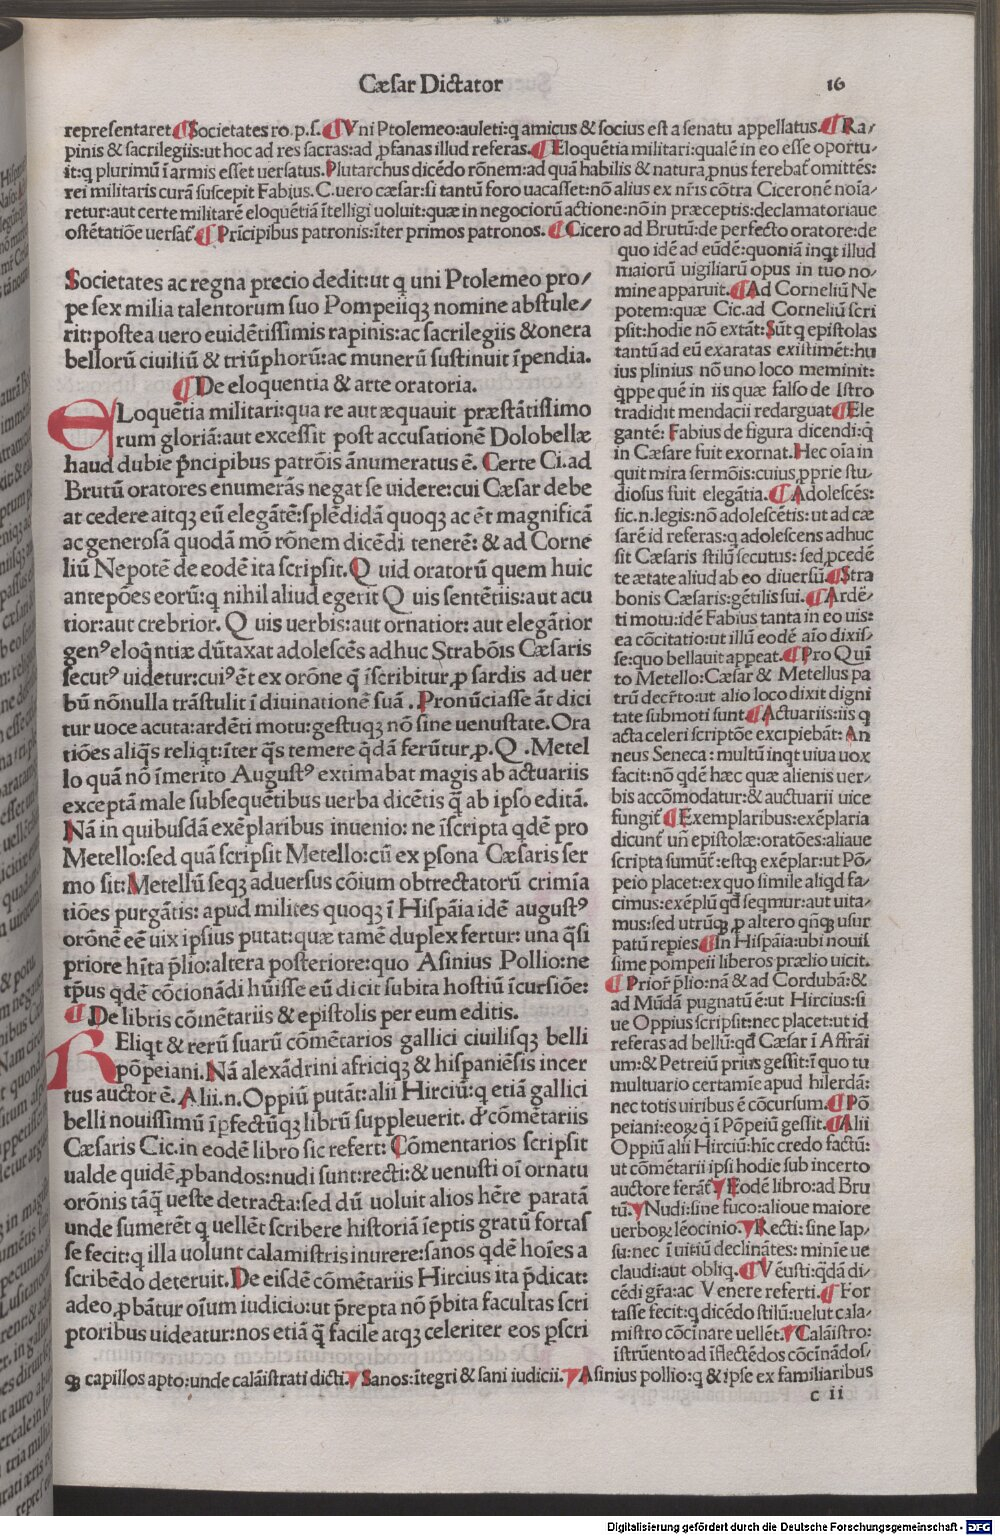 Cæſar Dictator
16
repreſentaret ¶ Societates ro.p.ſ. ¶ Vni Ptolemeo:auleti:q amicus & ſocius eſt a ſenatu appellatus. ¶ Ra/
pinis & ſacrilegiis:ut hoc ad res ſacras:ad ꝓfanas illud referas. ¶ Eloquētia militari:qualē in eo eſſe oportu/
it:q plurimū ī armis eſſet uerſatus. Plutarchus dicēdo rōnem:ad quā habilis & natura ꝓnus ferebat̄ omittēs:
rei militaris curā ſuſcepit Fabius. C.uero cæſar:ſi tantū foro uacaſſet:nō alius ex nr̄is cōtra Ciceronē noīa/
retur:aut certe militarē eloquētiā ītelligi uoluit:quæ in negociorū actione:nō in præceptis:declamatoriaue
oſtētatiōe uerſat̄ ¶ Pr̄incipibus patronis:īter primos patronos. ¶ Cicero ad Brutū:de perfecto oratore:de
quo idē ad eūdē:quoniā inqt illud
maiorū uigiliarū opus in tuo no/
mine apparuit. ¶ Ad Corneliū Ne
potem:quæ Cic.ad Corneliū ſcri
pſit:hodie nō extāt:Sūt q epiſtolas
tantū ad eū exaratas exiſtimēt:hu
ius plinius nō uno loco meminit:
qppe quē in iis quæ falſo de Iſtro
tradidit mendacii redarguat ¶ Ele
gantē: Fabius de figura dicendi:q̄
in Cæſare fuit exornat. Hec oīa in
quit mira ſermōis:cuius ꝓprie ſtu/
dioſus fuit elegātia. ¶ Adoleſcēs:
ſic.n.legis:nō adoleſcētis:ut ad cæ
ſarē id referas:q adoleſcens adhuc
ſit Cæſaris ſtilū ſecutus: ſed ꝓcedē
te ætate aliud ab eo diuerſū. ¶ Stra
bonis Cæſaris:gētilis ſui. ¶ Ardē/
ti motu:idē Fabius tanta in eo uis:
ea cōcitatio:ut illū eodē aīo dixiſ/
ſe:quo bellauit appeat. ¶ Pro Quī
to Metello:Cæſar & Metellus pa
trū decr̄to:ut alio loco dixit digni
tate ſubmoti ſunt. ¶ Actuariis:iis q
acta celeri ſcriptōe excipiebāt: An
neus Seneca: multū inqt uiua uox
facit:nō qdē hæc quæ alienis uer/
bis accōmodatur:& auctuarii uice
fungit̄ ¶ Exemplaribus:exēplaria
dicunt̄ un̄ epiſtolæ:oratōes:aliaue
ſcripta ſumūt̄:eſtqꝫ exēplar:ut Pō/
peio placet:ex quo ſimile aliqd fa/
cimus:exēplū qd̄ ſeqmur:aut uita/
mus:ſed utrūqꝫ ꝓ altero qn̄qꝫ uſur
patū repies. ¶ In Hiſpāia:ubi nouiſ
ſime pompeii liberos prælio uicit.
¶ Prior p̄lio:nā & ad Cordubā:&
ad Mūdā pugnatū ē:ut Hircius:ſi
ue Oppius ſcripſit:nec placet:ut id
referas ad bellū:qd̄ Cæſar ī Affrāi
um:& Petreiū prius geſſit:ī quo tu
multuario certamīe apud hilerdā:
nec totis uiribus ē cōcurſum. ¶ Pō
peiani:eoꝝ:q ī Pōpeiū geſſit. ¶ Alii
Oppiū alii Hirciū:hīc credo factū:
ut cōmētarii ipſi hodie ſub incerto
auctore ferāt̄ ¶ Eodē libro:ad Bru
tū. ¶ Nudi:ſine fuco:alioue maiore
uerboꝝ lēocinio. ¶ Recti: ſine lap/
ſu:nec ī uitiū declinātes: minīe ue
claudi:aut obliq. ¶ Vēuſti:qdā di/
cēdi gr̄a:ac Venere referti. ¶ For
taſſe fecit:q dicēdo ſtilū:uelut cala/
miſtro cōcinare uellēt. ¶ Calāiſtro:
īſtrūento ad īflectēdos cōcīnādoſ/
Societates ac regna precio dedit:ut q uni Ptolemeo pro/
pe ſex milia talentorum ſuo Pompeiiqꝫ nomine abſtule/
rit:poſtea uero euidētiſſimis rapinis:ac ſacrilegiis & onera
bellorū ciuiliū & triūphorū:ac munerū ſuſtinuit īpendia.
¶ De eloquentia & arte oratoria.
ELoquētia militari:qua re aut æquauit præſtātiſſimo
rum gloriā:aut exceſſit poſt accuſationē Dolobellæ
haud dubie p̄ncipibus patrōis ānumeratus ē. Certe Ci.ad
Brutū oratores enumerās negat ſe uidere:cui Cæſar debe
at cedere aitqꝫ eū elegātē:ſplēdidā quoqꝫ ac ēt magnificā
ac generoſā quodā mō rōnem dicēdi tenerē: & ad Corne
liū Nepotē de eodē ita ſcripſit. Quid oratorū quem huic
antepōes eorū:q nihil aliud egerit Quis ſentētiis:aut acu
tior:aut crebrior. Quis uerbis:aut ornatior: aut elegātior
genꝰ eloq̄ntiæ dūtaxat adoleſcēs adhuc Strabōis Cæſaris
ſecutꝰ uidetur:cuiꝰ ēt ex orōne q̄ īſcribitur ꝓ ſardis ad uer
bū nōnulla trāſtulit ī diuinationē ſuā. Pronūciaſſe āt dici
tur uoce acuta:ardēti motu:geſtuqꝫ nō ſine uenuſtate. Ora
tiōes aliq̄s reliqt:īter q̄s temere q̄dā ferūtur, ꝓ.Q.Metel
lo quā nō īmerito Auguſtꝰ extimabat magis ab actuariis
exceptā male ſubſequētibus uerba dicētis q̄ ab ipſo editā.
Nā in quibuſdā exēplaribus inuenio: ne īſcripta qdē pro
Metello:ſed quā ſcripſit Metello:cū ex pſona Cæſaris ſer
mo ſit:Metellū ſeqꝫ aduerſus cōium obtrectatorū crimīa
tiōes purgātis: apud milites quoqꝫ ī Hiſpāia idē auguſtꝰ
orōnē eē uix ipſius putat:quæ tamē duplex fertur: una q̄ſi
priore hīta p̄lio:altera poſteriore:quo Aſinius Pollio:ne
tp̄us qdē cōcionādi hūiſſe eū dicit ſubita hoſtiū īcurſiōe:
¶ De libris cōmētariis & epiſtolis per eum editis.
REliqt & rerū ſuarū cōmētarios gallici ciuiliſqꝫ belli
pōpeiani. Nā alexādrini africiqꝫ & hiſpaniēſis incer
tus auctor ē. Alii.n.Oppiū putāt:alii Hirciū:q etiā gallici
belli nouiſſimū īꝑfectūqꝫ librū ſuppleuerit. d' cōmētariis
Cæſaris Cic.in eodē libro ſic refert: Cōmentarios ſcripſit
ualde quidē ꝓbandos:nudi ſunt:recti:& uenuſti oī ornatu
orōnis tāq̄ ueſte detracta:ſed dū uoluit alios hēre paratā
unde ſumerēt q uellēt ſcribere hiſtoriā īeptis gratū fortaſ
ſe fecit:q illa uolunt calamiſtris inurere:ſanos qdē hoīes a
ſcribēdo deteruit. De eiſdē cōmētariis Hircius ita p̄dicat:
adeo ꝓbātur oīum iudicio:ut p̄repta nō p̄bita facultas ſcri
ptoribus uideatur:nos etiā q̄ facile atqꝫ celeriter eos pſcri
qꝫ capillos apto:unde calāiſtrati dicti. ¶ Sanos:ītegri & ſani iudicii. ¶ Aſinius pollio:q & ipſe ex familiaribus
c ii
Digitalisierung gefördert durch die Deutsche Forschungsgemeinschaft - DFG